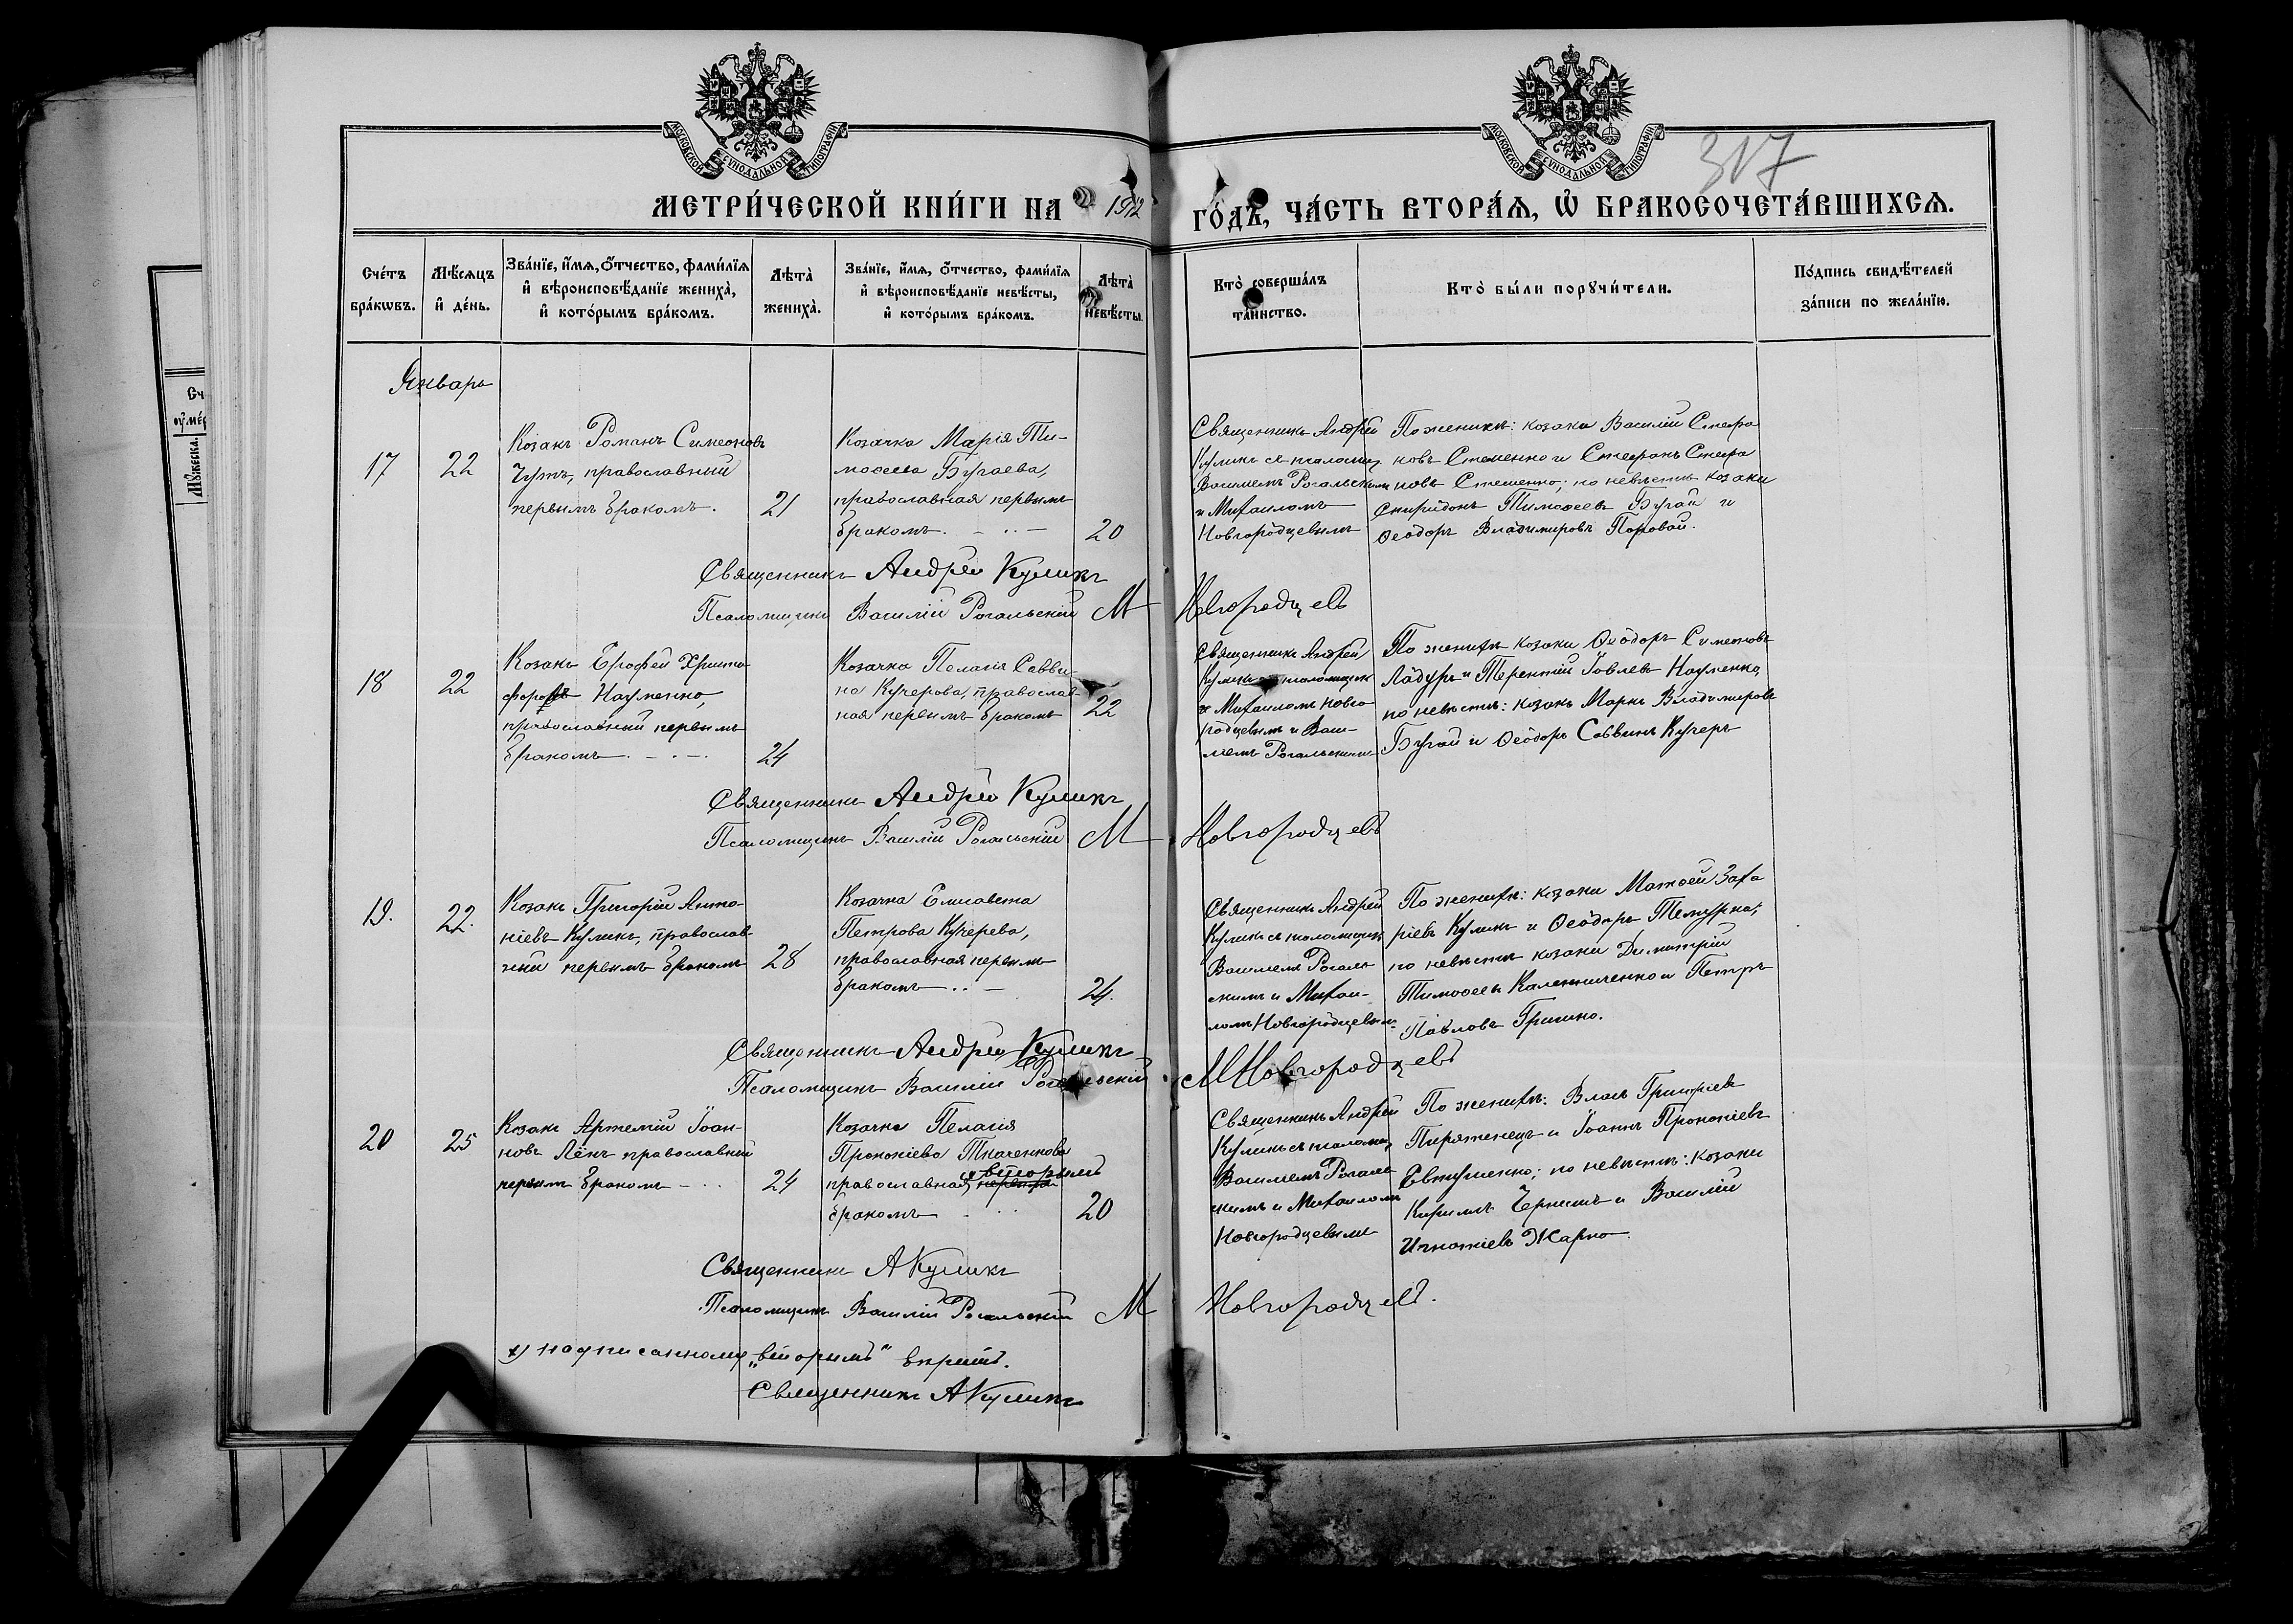 МОСКОВСКОЙ СѴНОДАЛЬНОЙ ТИПОГРАФІИ
МОСКОВСКОЙ СѴНОДАЛЬНОЙ ТИПОГРАФІИ
317
МЕТРИ́ЧЕСКОЙ КНИ́ГИ НА 1912 ГО́ДЪ, ЧА́СТЬ ВТОРА́Ѧ, Ѡ҆ БРАКОСОЧЕТА́ВШИХСѦ.
Сче́тъ бра́кѡвъ.
Мѣ́сѧцъ и҆ де́нь.
Зва́нїе, и҆́мѧ, ѻ҆́тчество, фами́лїѧ и҆ вѣроисповѣ́данїе жениха̀, и҆ кото́рымъ бра́комъ.
Лѣта̀ жениха̀.
Зва́нїе, и҆́мѧ, ѻ҆́тчество, фами́лїѧ и҆ вѣроисповѣ́данїе невѣ́сты, и҆ кото́рымъ бра́комъ.
Лѣта̀ невѣ́сты.
Кто̀ соверша́лъ та́инство.
Кто̀ бы́ли порꙋчи́тели.
По́дпись свидѣ́телей за́писи по жела́нїю.
Январь
17
22
Козакъ Романъ Симеоновъ
Чутъ, православный
первымъ бракомъ.
21
Козачка Марія Ти-
моѳеева Бугаева,
православная первымъ
бракомъ.
20
Священникъ Андрей
Куликъ съ псаломщ.
Василіемъ Рогальскимъ
и Михаиломъ
Новгородцевымъ
По женихѣ: козаки Василій Стефа
новъ Стеменко и Стефанъ Стефа
новъ Стеменко; по невѣстѣ козаки
Спиридонъ Тимоѳеевъ Бугай и
Ѳеодоръ Владимировъ Поровай.
Священникъ Андрей Куликъ
Псаломщики Василій Рогальскій М Новгородцевъ
18
22
Козакъ Ерофей Христо-
форовъ Науменко,
православный первымъ
бракомъ.
24
Козачка Пелагія Савви-
на Кучерова, православ-
ная первымъ бракомъ
22
Священникъ Андрей
Куликъ съ псаломщик
и Михаиломъ Новго
родцевымъ и Васи-
ліемъ Рогальскимъ
По женихѣ козаки Ѳеодоръ Симеоновъ
Ладуръ и Терентій Іовлевъ Науменко,
по невѣстѣ: козакъ Маркъ Владимировъ
Бугай и Ѳеодоръ Саввинъ Кучеръ
Священникъ Андрей Куликъ
Псаломщикъ Василій Рогальскій М Новгородцевъ
19.
22.
Козакъ Григорій Анто-
ніевъ Куликъ, православ-
ный первымъ бракомъ
28
Козачка Елисавета
Петрова Кучерева,
православная первымъ
бракомъ
24.
Священникъ Андрей
Куликъ съ псаломщик
Василіемъ Рогаль
скимъ и Михаи-
ломъ Новгородцевым
По женихѣ: козаки Матѳей Заха
ріевъ Куликъ и Ѳеодоръ Темурка;
по невѣстѣ козаки Димитрій
Тимоѳеевъ Калениченко и Петръ
Павловъ Гришко.
Священникъ Андрей Куликъ
Псаломщикъ Василій Рогальскій М Новгородцевъ
20
25
Козакъ Артемій Іоан-
новъ Лёнъ православный
первымъ бракомъ
24
Козачка Пелагія
Прокопіева Ткаченкова
х) вторымъ
православная, первымъ
бракомъ
20
Священникъ Андрей
Куликъ съ псаломщ
Василіемъ Рогаль
скимъ и Михаиломъ
Новгородцевыми
По женихѣ: Власъ Григоріевъ
Пирятенецъ и Іоаннъ Прокопіевъ
Евтушенко; по невѣстѣ: козаки
Кириллъ Чернишъ и Василій
Игнатіевъ Жарко.
Священникъ А Куликъ
Псаломщикъ Василій Рогальскій М Новгородцевъ.
х) надписанному „вторымъ“ вѣрить.
Священникъ А Куликъ
Мꙋжеска.